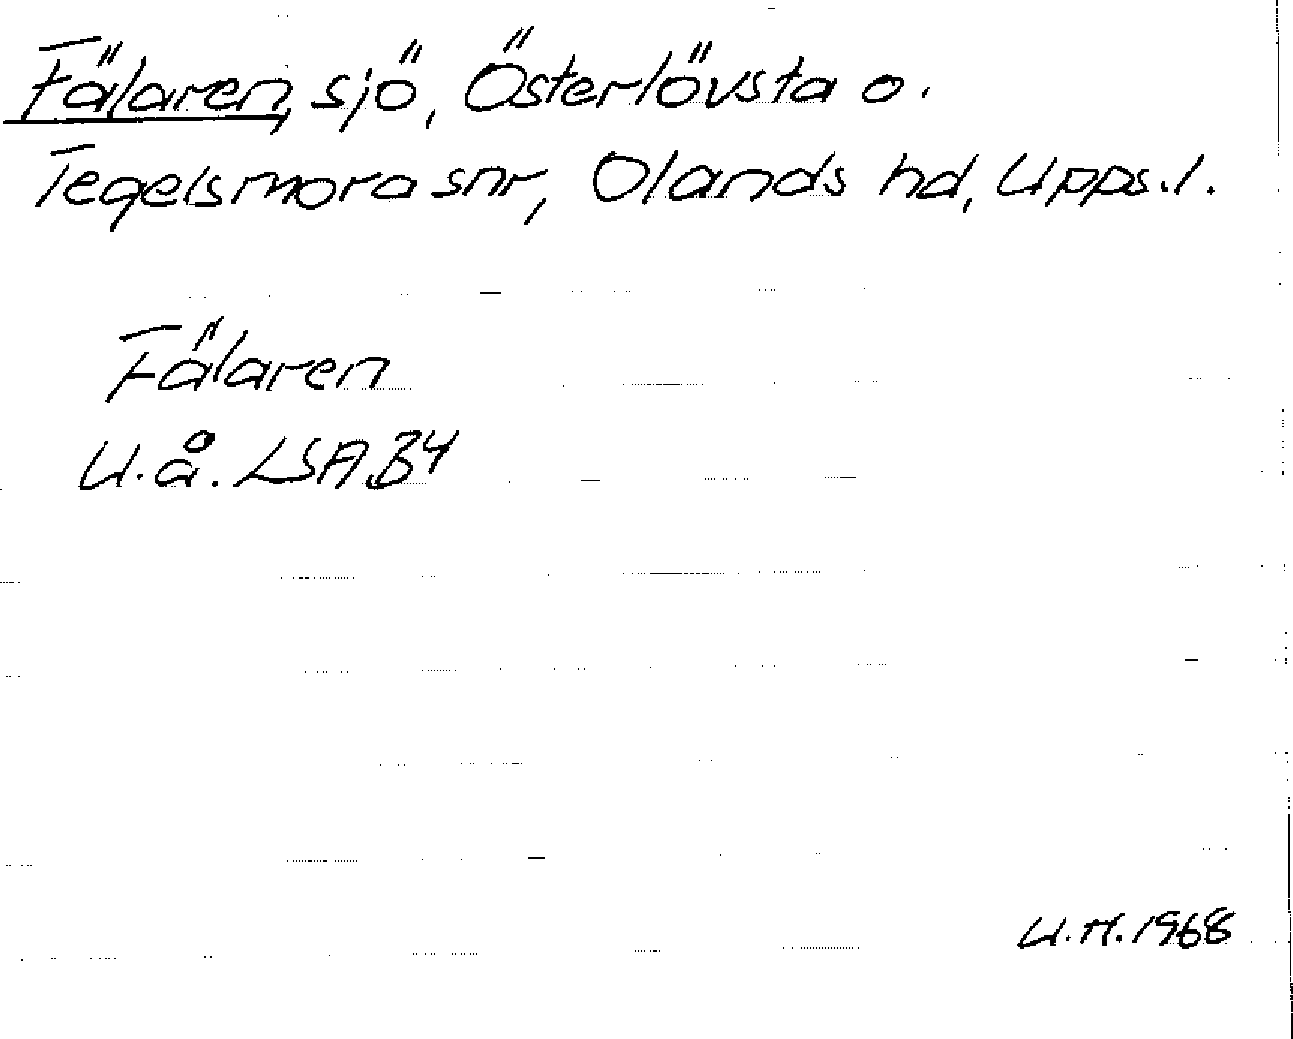 Fälaren, sjö, Österlövsta o.
Tegelsmora snr, Olands hd, Upps.l.
Fälaren
U.å. LSA B4
U.H. 1968